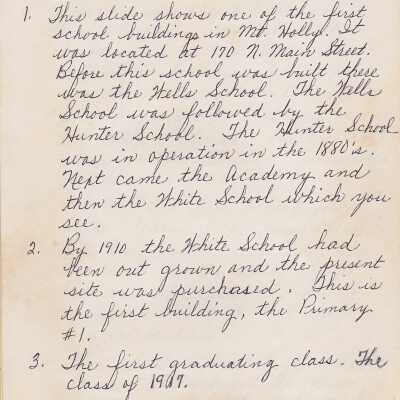 1. This slide shows one of the first
school buildings in Mt. Holly. It
was located at 170 N. Main Street.
Before this school was built there
was the Wells School. The Wells
School was followed by the
Hunter School. The Hunter School
was in operation in the 1880's.
Next came the Academy and
then the White School which you
see.
2. By 1910 the White School had
been out grown and the present
site was purchased. This is
the first building, the Primary
#1.
3. The first graduating class. The
class of